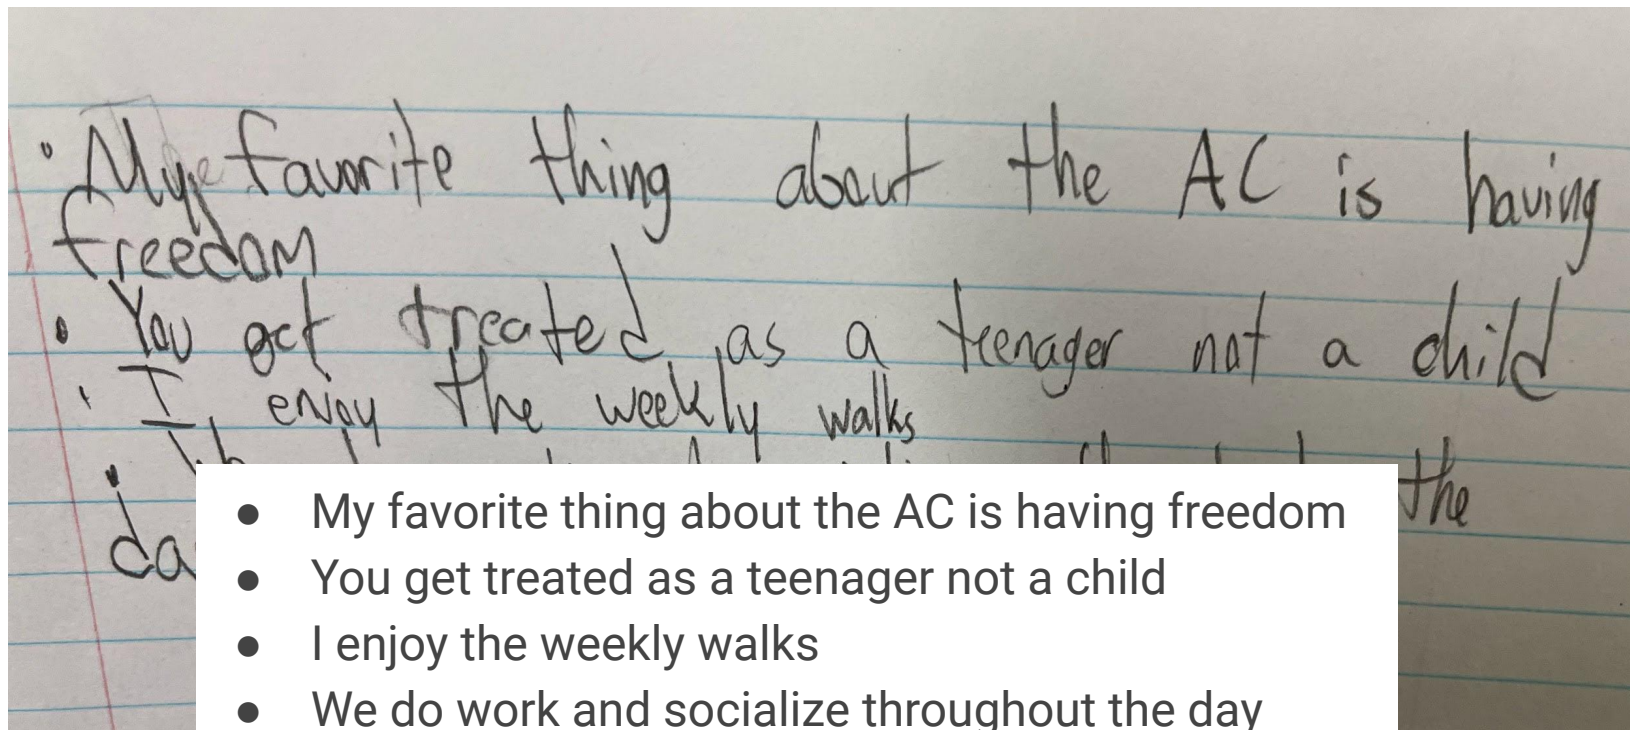 • My favorite thing about the AC is having
freedom
• You get treated as a teenager not a child
• I enjoy the weekly walks
• the
da
● My favorite thing about the AC is having freedom
● You get treated as a teenager not a child
● I enjoy the weekly walks
● We do work and socialize throughout the day